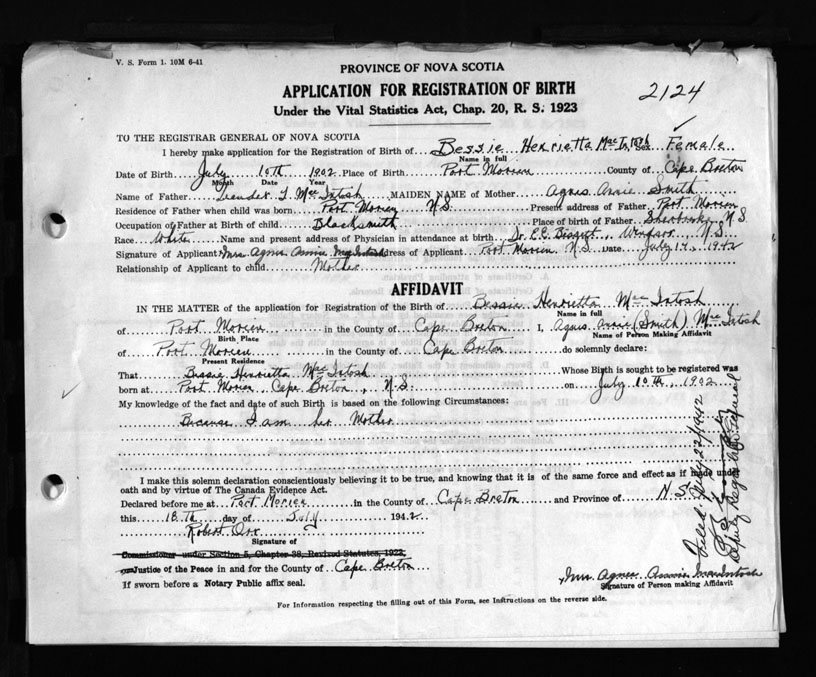 V. S. Form 1. 10M 6-41
PROVINCE OF NOVA SCOTIA
APPLICATION FOR REGISTRATION OF BIRTH
2124
Under the Vital Statistics Act, Chap. 20, R. S. 1923
TO THE REGISTRAR GENERAL OF NOVA SCOTIA
I hereby make application for the Registration of Birth of Bessie Henrietta MacIntosh Sex Female
Name in full
Date of Birth July 10th 1902 Place of Birth Port Morien County of Cape Breton
Month Date Year
Name of Father Leander T. MacIntosh MAIDEN NAME of Mother Agnes Annie Smith
Residence of Father when child was born Port Morien N.S. Present address of Father Port Morien
Occupation of Father at Birth of child Blacksmith Place of birth of Father Sherbrooke N.S
Race White Name and present address of Physician in attendance at birth Dr. E.C. Windsor N.S.
Signature of Applicant Mrs Agnes Annie MacIntosh Address of Applicant Port Morien N.S. Date July 1942
Relationship of Applicant to child Mother
AFFIDAVIT
IN THE MATTER of the application for Registration of the Birth of Bessie Henrietta MacIntosh
Name in full
of Port Morien in the County of Cape Breton I, Agnes Annie (Smith) MacIntosh
Birth Place Name of Person Making Affidavit
of Port Morien in the County of Cape Breton do solemnly declare:
Present Residence
That Bessie Henrietta MacIntosh Whose Birth is sought to be registered was
born at Port Morien Cape Breton, N.S. on July 10th, 1902
My knowledge of the fact and date of such Birth is based on the following Circumstances:
Because I am her Mother
I make this solemn declaration conscientiously believing it to be true, and knowing that it is of the same force and effect as if made under
oath and by virtue of The Canada Evidence Act.
Declared before me at Port Morien in the County of Cape Breton and Province of N.S.
this 18th day of July 1942
Robert Orr
Signature of
Commissioner under Section 5, Chapter 38, Revised Statutes, 1923,
or Justice of the Peace in and for the County of Cape Breton
If sworn before a Notary Public affix seal.
Mrs Agnes Annie MacIntosh
Signature of Person making Affidavit
For Information respecting the filling out of this Form, see Instructions on the reverse side.
Filed July 22/1942
Deputy Registrar General